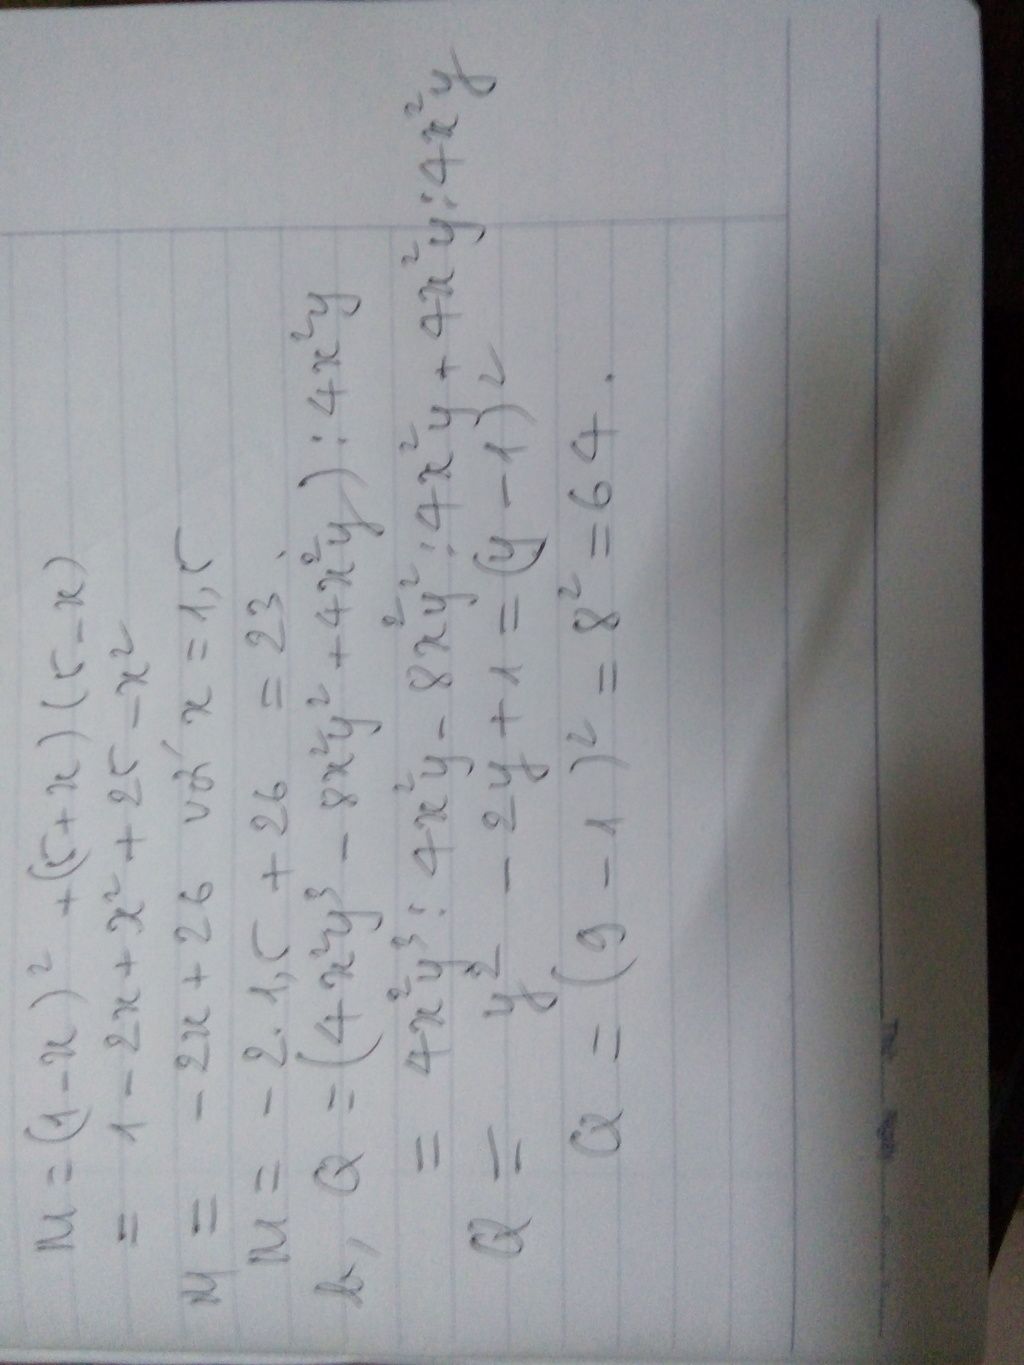 M = (1-x)² + (5+x)(5-x)
= 1 - 2x + x² + 25 - x²
M = -2x + 26 với x = 1,5
M = -2.1,5 + 26 = 23.
b, Q = (4x²y³ - 8x²y² + 4x²y) : 4x²y
= 4x²y³ : 4x²y - 8x²y² : 4x²y + 4x²y : 4x²y
Q = y² - 2y + 1 = (y-1)²
Q = (9-1)² = 8² = 64.